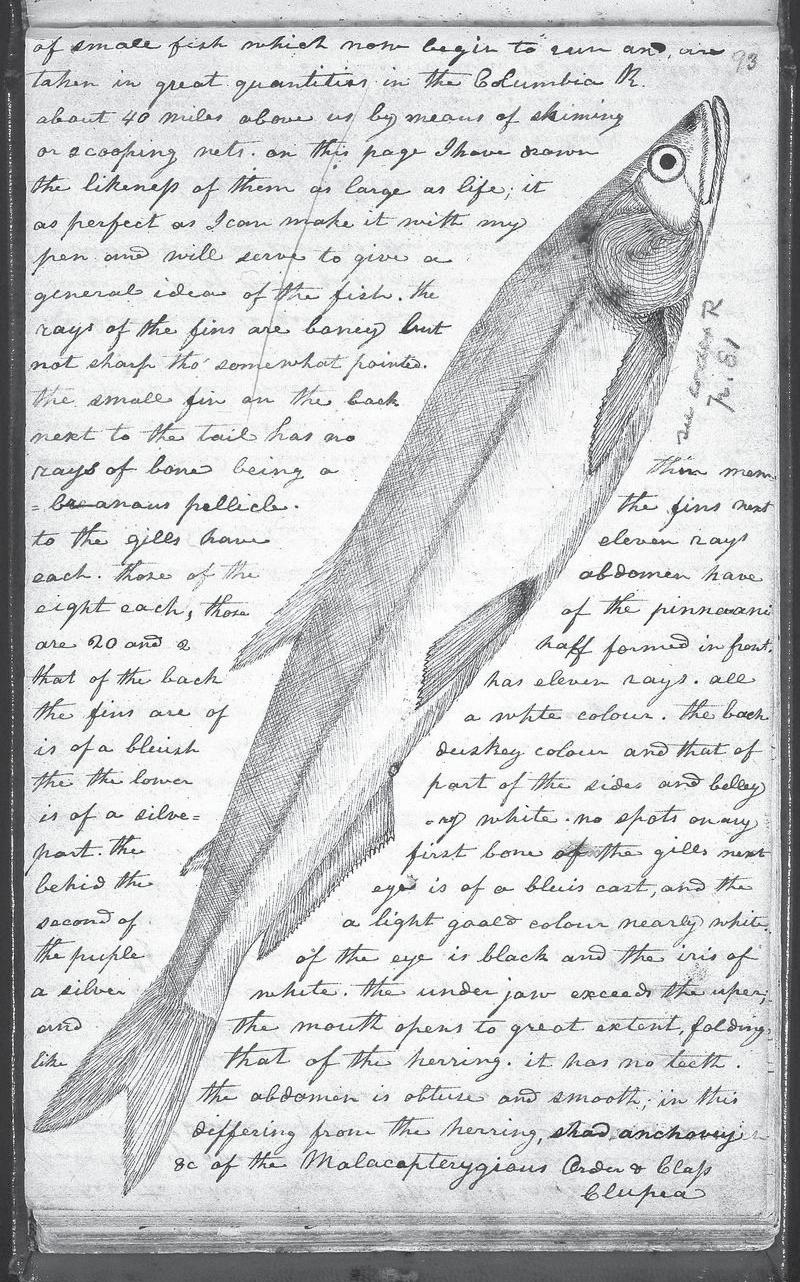 93
of small fish which now begin to run and are
taken in great quantities in the Columbia R.
about 40 miles above us by means of skiming
or scooping nets. on this page I have drawn
the likeness of them as large as life; it
as perfect as I can make it with my
pen and will serve to give a
general idea of the fish. the
rays of the fins are boney but
not sharp tho' somewhat pointed.
the small fin on the back
next to the tail has no
rays of bone being a thin mem
= branaus pellicle. the fins next
to the gills have eleven rays
each. those of the abdomen have
eight each, those of the pinnaani
are 20 and 2 haff formed in front.
that of the back has eleven rays. all
the fins are of a white colour. the back
is of a bleuish duskey colour and that of
the the lower part of the sides and belley
is of a silve= ry white. no spots on any
part. the first bone of the gills next
behid the eye is of a bleuis cast, and the
second of a light goald colour nearly white.
the puple of the eye is black and the iris of
a silver white. the under jaw exceeds the uper;
and the mouth opens to great extent, folding
like that of the herring. it has no teeth.
the abdomen is obtuse and smooth; in this
differing from the herring, shad, anchovy
&c of the Malacopterygious Order & Class
Clupea
see
R
p. 81